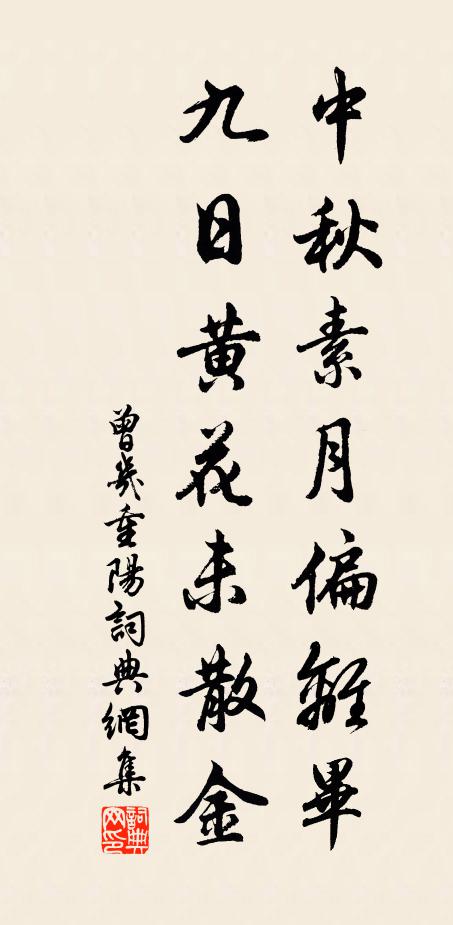 中秋素月偏離畢
九日黃花未散金
曾幾重陽詞典網集
詞典網印